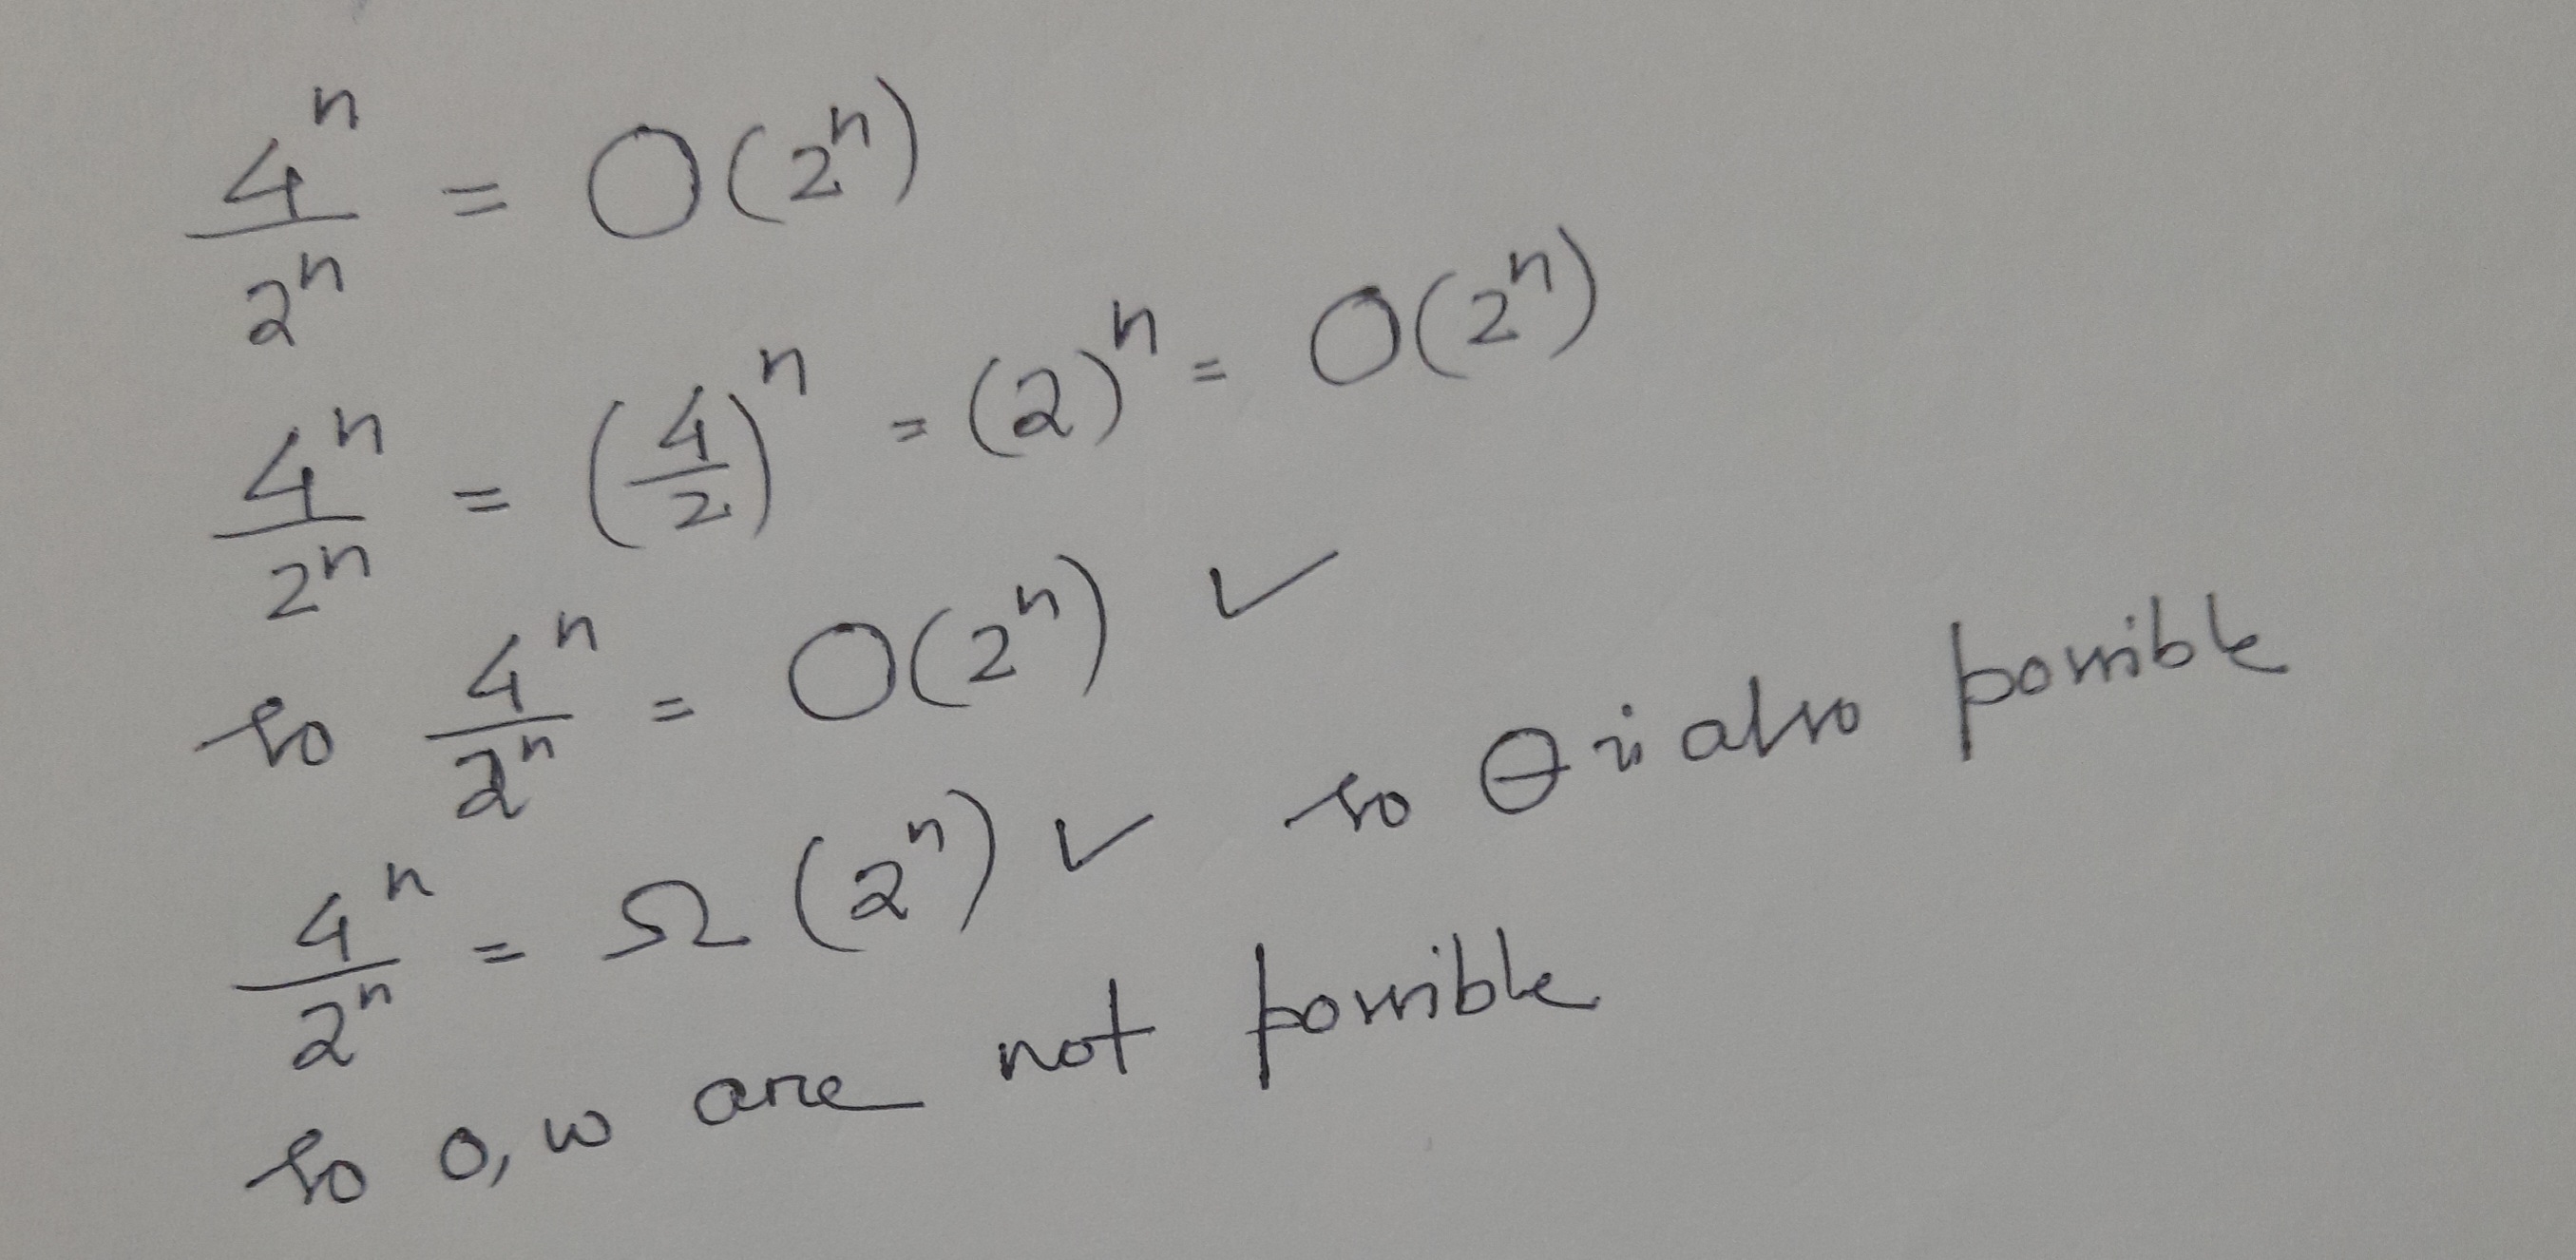 4^n / 2^n = O(2^n)
4^n / 2^n = (4/2)^n = (2)^n = O(2^n)
so 4^n / 2^n = O(2^n) ✓
4^n / 2^n = Ω(2^n) ✓ so Θ is also possible
so o, ω are not possible